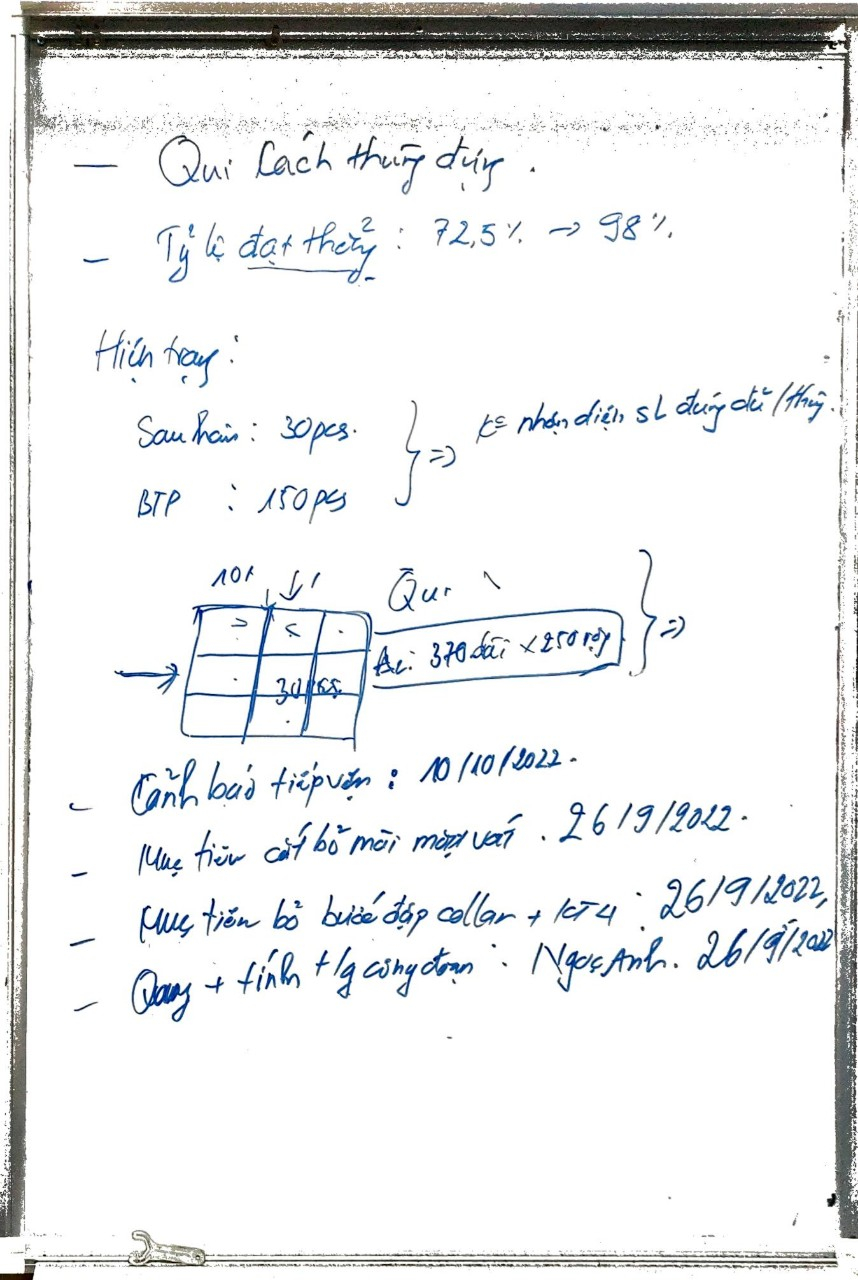 — Qui Cách thùng đựng.
- Tỷ lệ đạt thẳng: 72,5% → 98%.
Hiện trạng:
Sau hàn: 30pcs. } => K° nhận diện SL đúng đủ/thùng.
BTP : 150pcs
Qui
370 dài x 250 rộng } =>
30 pcs
- Cảnh báo tiếp vận: 10/10/2022.
- Mục tiêu cắt bỏ mài mép vát. 26/9/2022.
- Mục tiêu bỏ bước đập collar + KT4: 26/9/2022,
- Quay + tính t/g công đoạn: Ngọc Anh. 26/9/2022